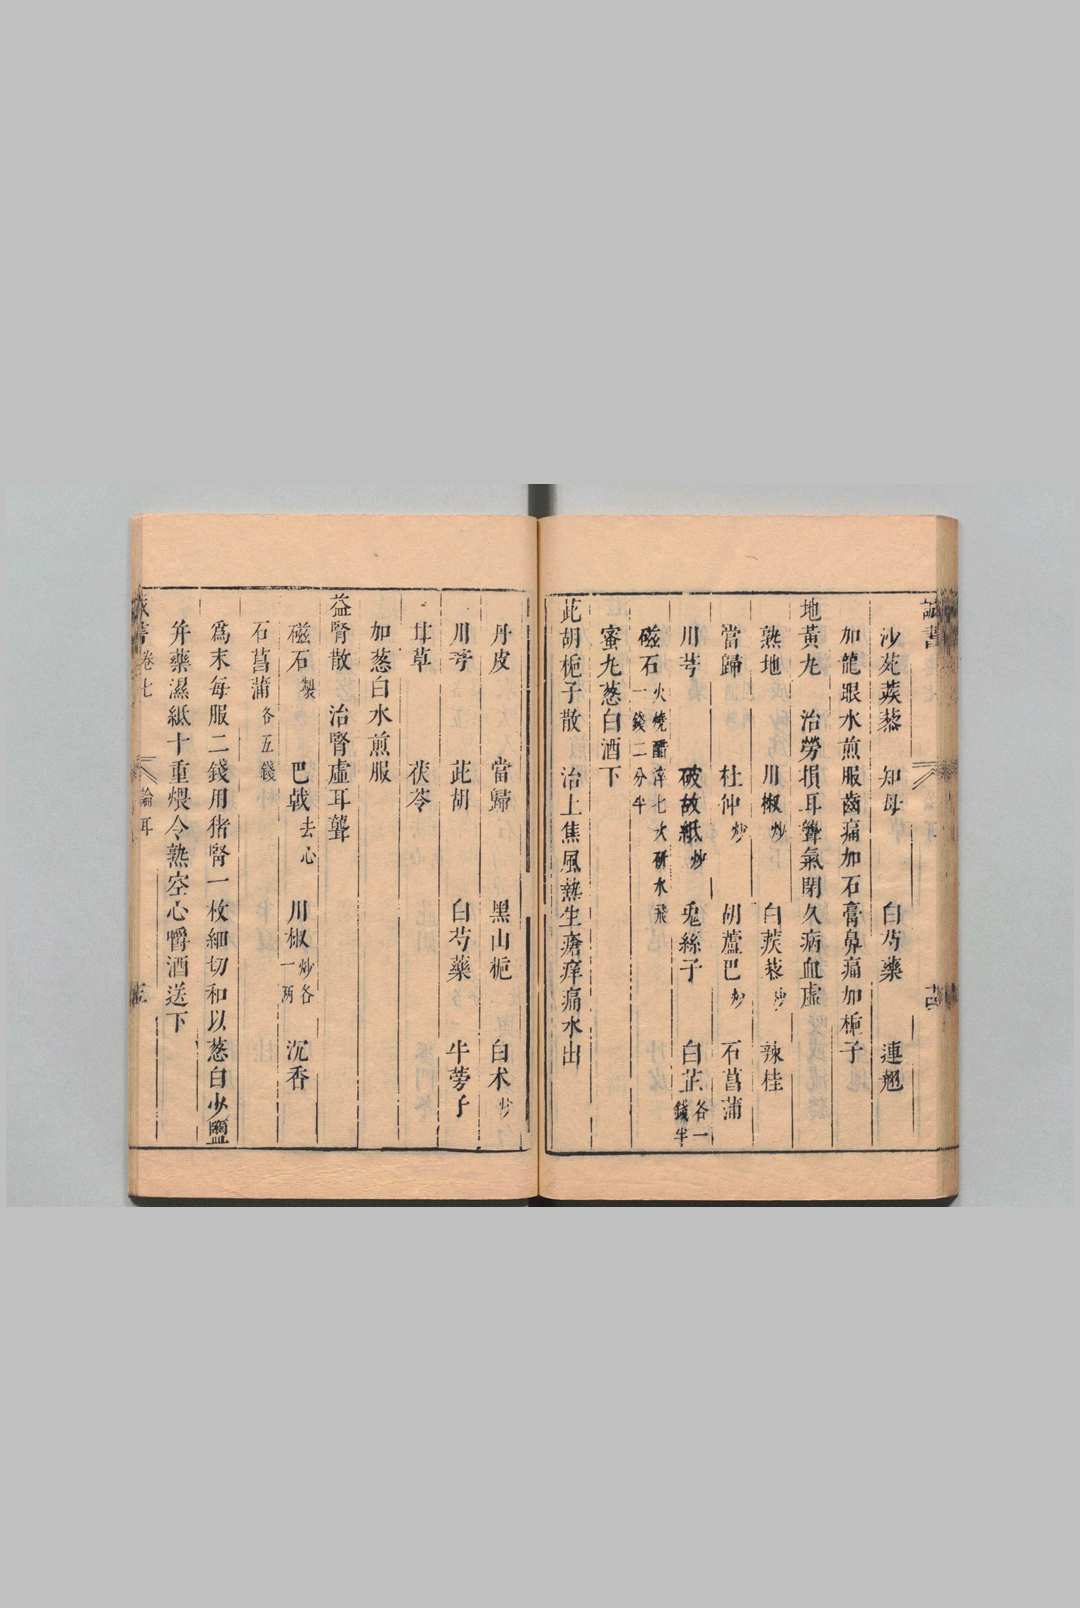 沙苑蒺藜 知母 白芍藥 連翹
加龍眼水煎服齒痛加石膏鼻痛加梔子
地黃丸 治勞損耳聾氣閉久病血虛
熟地 川椒炒 白蒺藜炒 辣桂
當歸 杜仲炒 胡蘆巴炒 石菖蒲
川芎 破故紙炒 兎絲子 白芷各一錢半
磁石火燒醋淬七次研水飛一錢二分半
蜜丸葱白酒下
茈胡梔子散 治上焦風熱生瘡痒痛水出
丹皮 當歸 黑山梔 白术炒
川芎 茈胡 白芍藥 牛蒡子
甘草 茯苓
加葱白水煎服
益腎散 治腎虛耳聾
磁石製 巴戟去心 川椒炒各一兩 沉香
石菖蒲各五錢
爲末每服二錢用猪腎一枚細切和以葱白少鹽
并藥濕紙十重煨令熟空心嚼酒送下
書 卷七 論耳